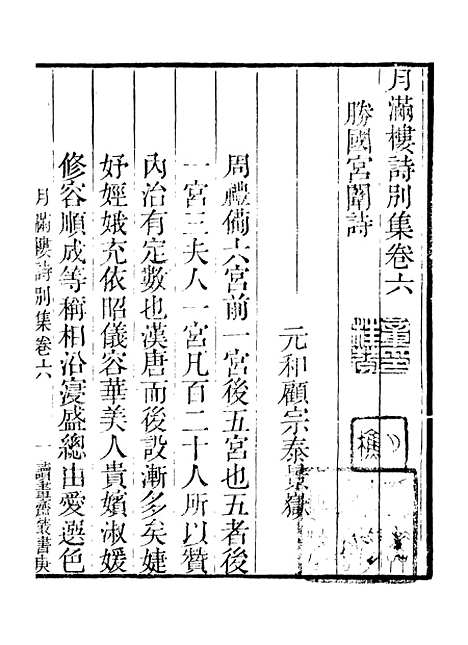 月滿樓詩別集卷六
勝國宮闈詩
元和顧宗泰景嶽
周禮備六宮前一宮後五宮也五者後
一宮三夫人一宮凡百二十人所以贊
內治有定數也漢唐而後設漸多矣婕
妤娙娥充依昭儀容華美人貴嬪淑媛
修容順成等稱相沿寖盛總由愛選色
月滿樓詩別集卷六
一
讀畫齋叢書庚